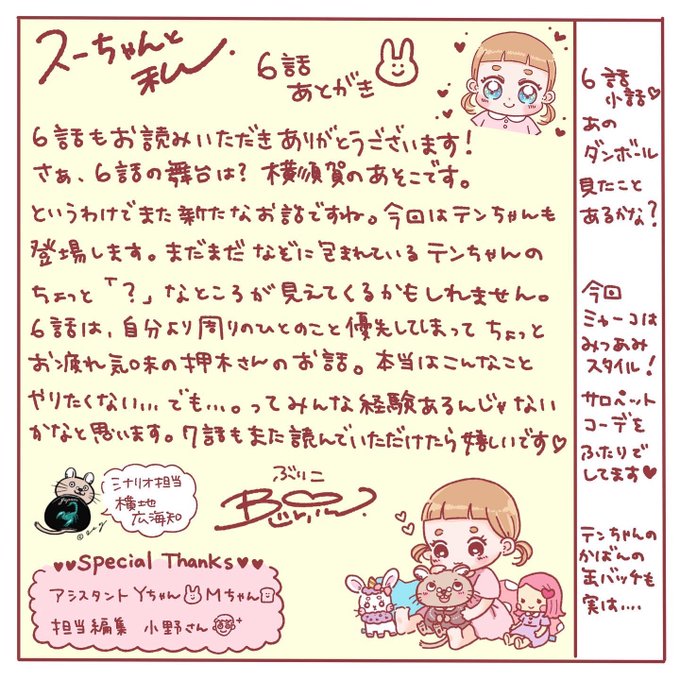 スーちゃんと私
6話
あとがき
6話もお読みいただきありがとうございます！
さぁ、6話の舞台は？ 横須賀のあそこです。
というわけでまた新たなお話ですね。今回はテンちゃんも
登場します。まだまだなぞに包まれているテンちゃんの
ちょっと「？」なところが見えてくるかもしれません。
6話は、自分より周りのひとのこと優先してしまってちょっと
お疲れ気味の押木さんのお話。本当はこんなこと
やりたくない...でも...。ってみんな経験あるんじゃない
かなと思います。7話もまた読んでいただけたら嬉しいです♡
ぶりこ
シナリオ担当
横地
広海知
♥♥Special Thanks♥♥
アシスタント Yちゃん Mちゃん
担当編集 小野さん
6話
小話♡
あの
ダンボール
見たこと
あるかな？
今回
ミャーコは
みつあみ
スタイル！
サロペット
コーデを
ふたりで
してます♥
テンちゃんの
かばんの
缶バッチも
実は....